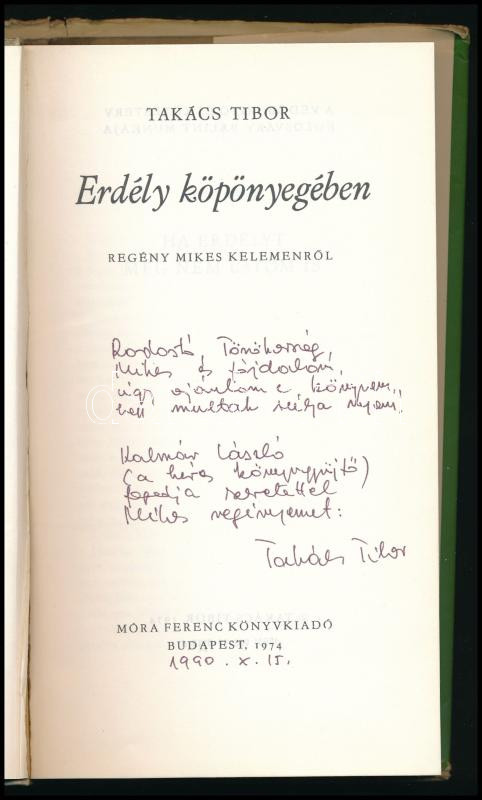 TAKÁCS TIBOR
Erdély köpönyegében
REGÉNY MIKES KELEMENRŐL
Rodostó, Törökország,
Mikes és fájdalom,
úgy ajánlom e könyvem,
hell multak
Kalmár László
(a híres könyvgyűjtő)
fogadja szeretettel
Mikes regényemet:
Takács Tibor
MÓRA FERENC KÖNYVKIADÓ
BUDAPEST, 1974
1990. X. 15.